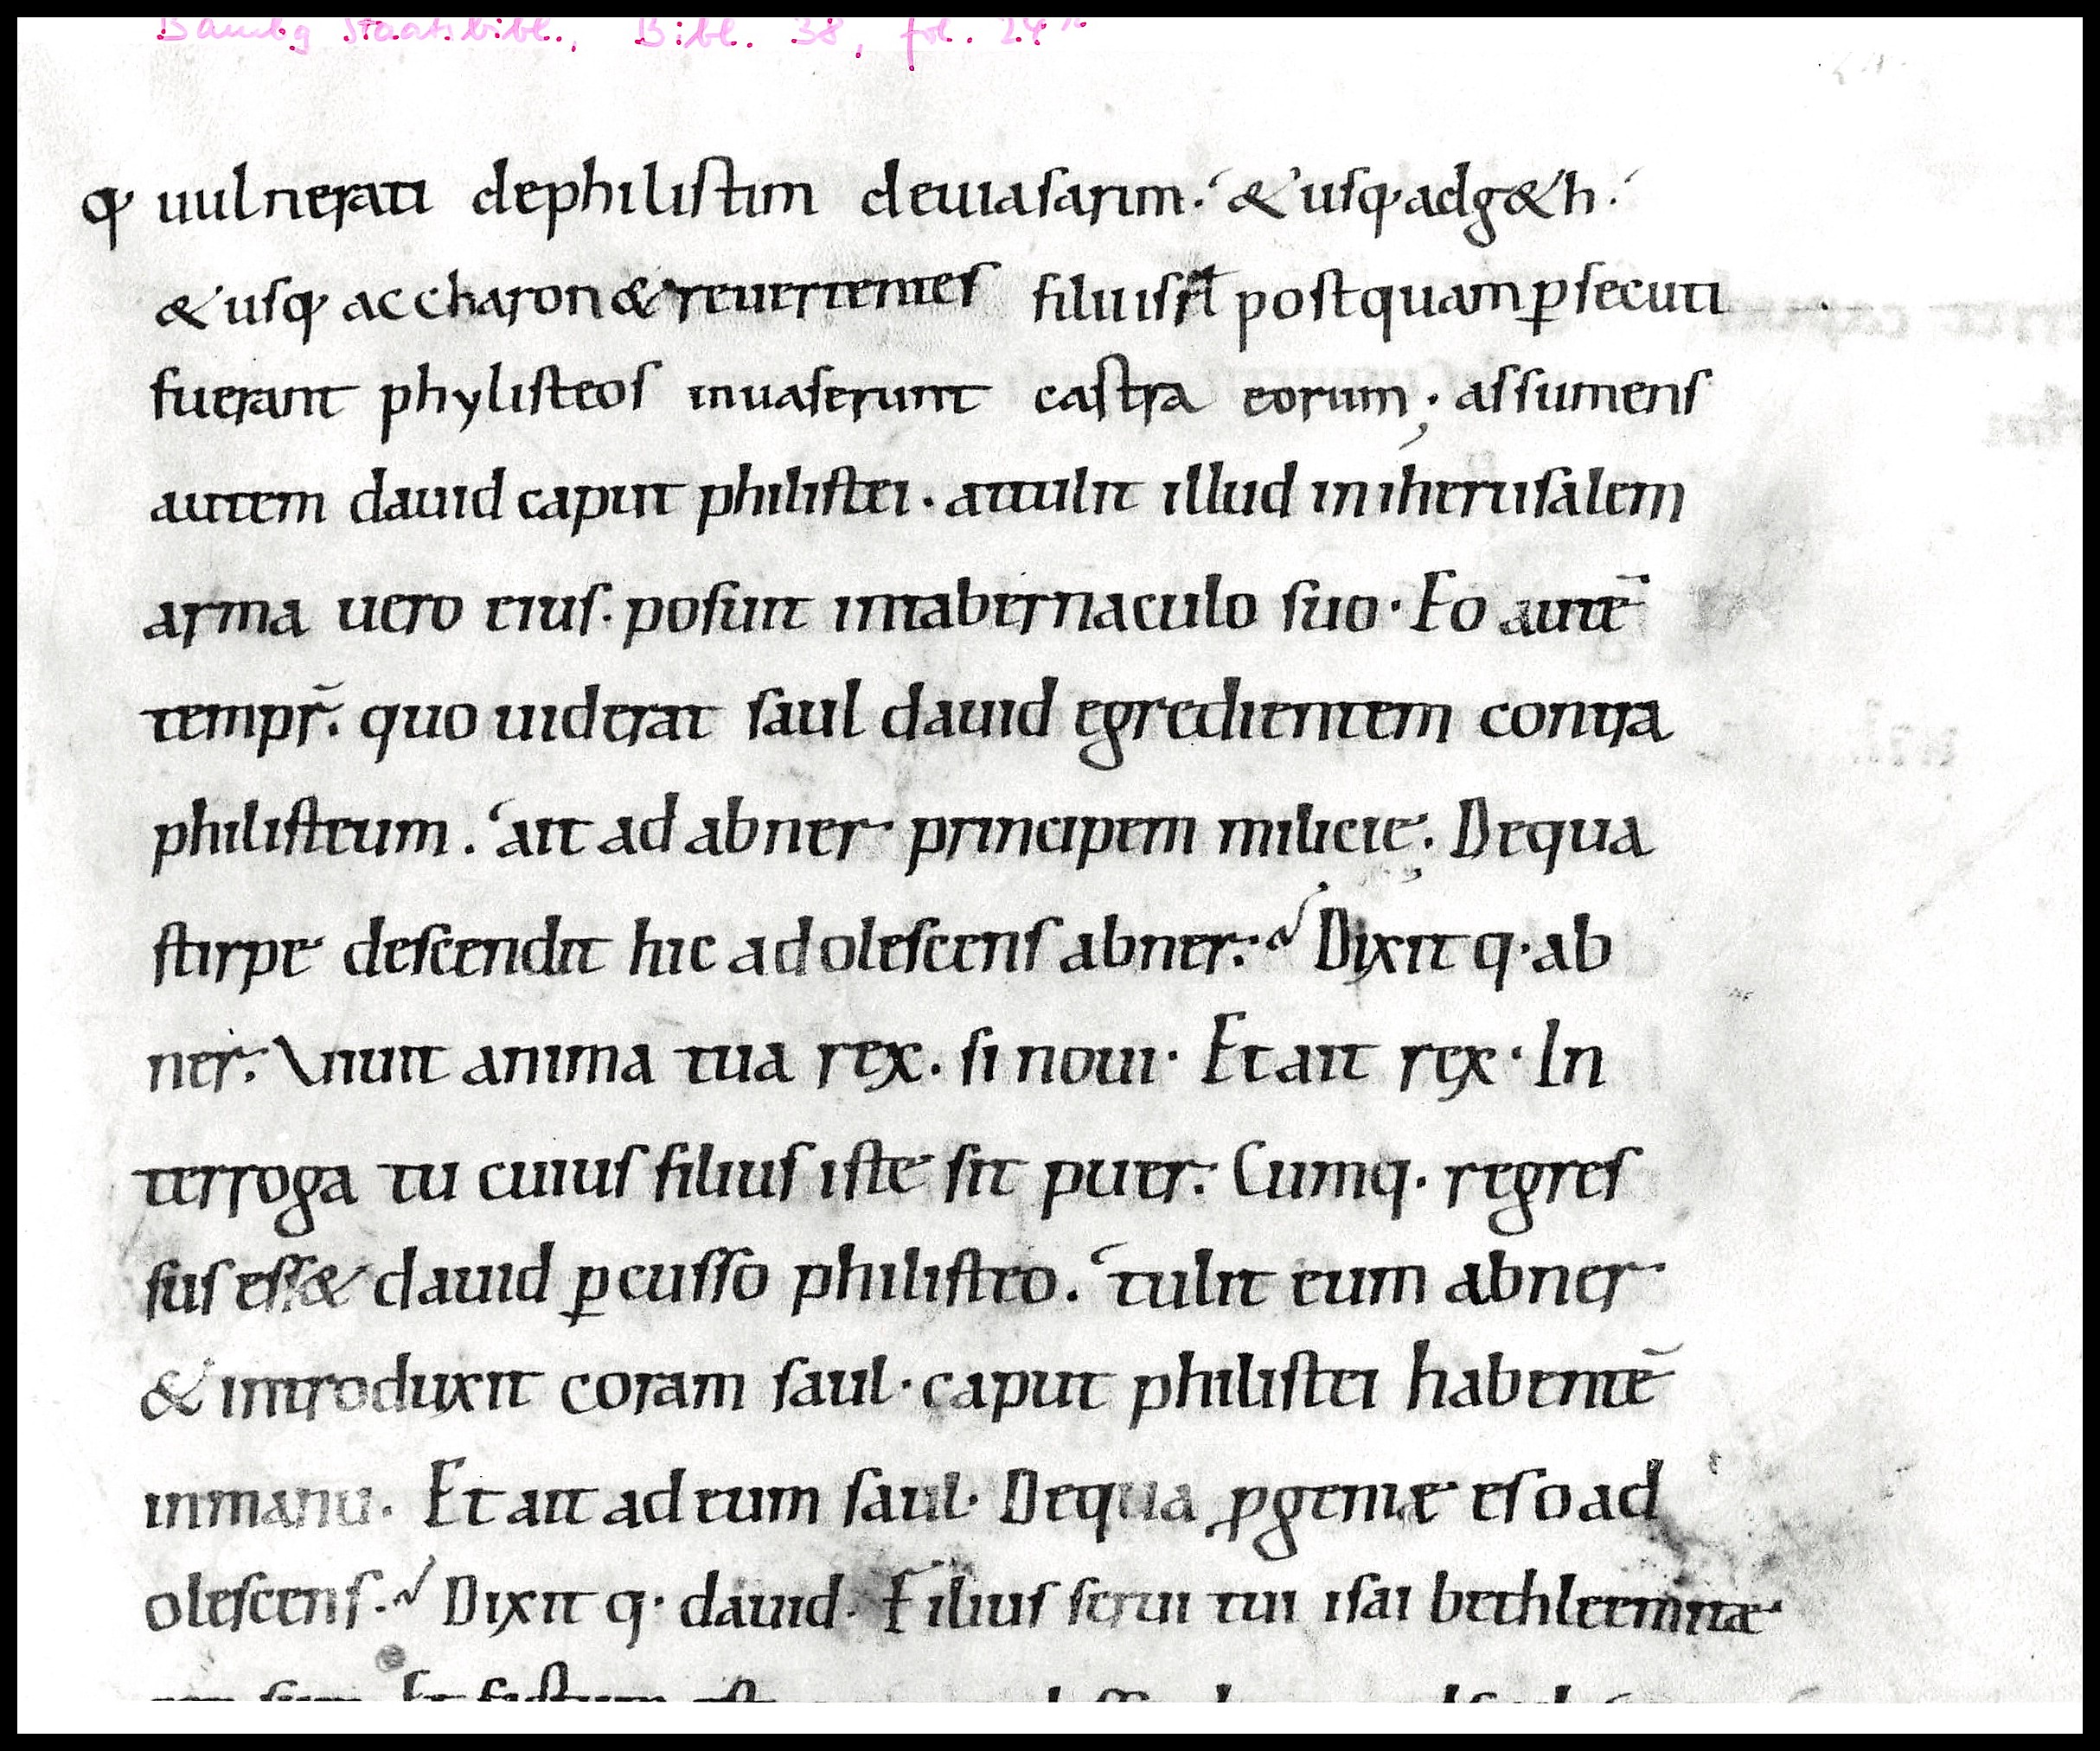 Bambg Staatsbibl., Bibl. 38, fol. 24r
q; uulnerati dephilistim deuiasarim. & usq; adg&h.
& usq; accharon & reuertentes filii isrl postquam ꝑsecuti
fuerant phylisteos inuaserunt castra eorum; assumens
autem dauid caput philistei. attulit illud iniherusalem
arma uero eius. posuit intabernaculo suo. Eo autē
tempr̄. quo uiderat saul dauid egredientem contra
philisteum. ait ad abner principem milicie. Dequa
stirpe descendit hic adolescens abner? Dixit q. ab
ner. Viuit anima tua rex. si noui. Et ait rex. In
terroga tu cuius filius iste sit puer. Cumq. regres
sus ess& dauid ꝑcusso philisteo. tulit eum abner
& introduxit coram saul. caput philistei habentē
inmanu. Et ait ad eum saul. Dequa ꝓgenie es o ad
olescens? Dixit q. dauid. Filius serui tui isai bethleemitæ